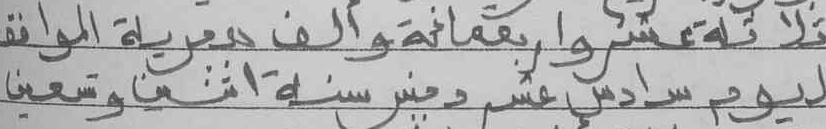 ثلاثة عشر واربعمائة وألف هجرية الموافق
ليوم سادس عشر دجنبر سنة اثنين وتسعين